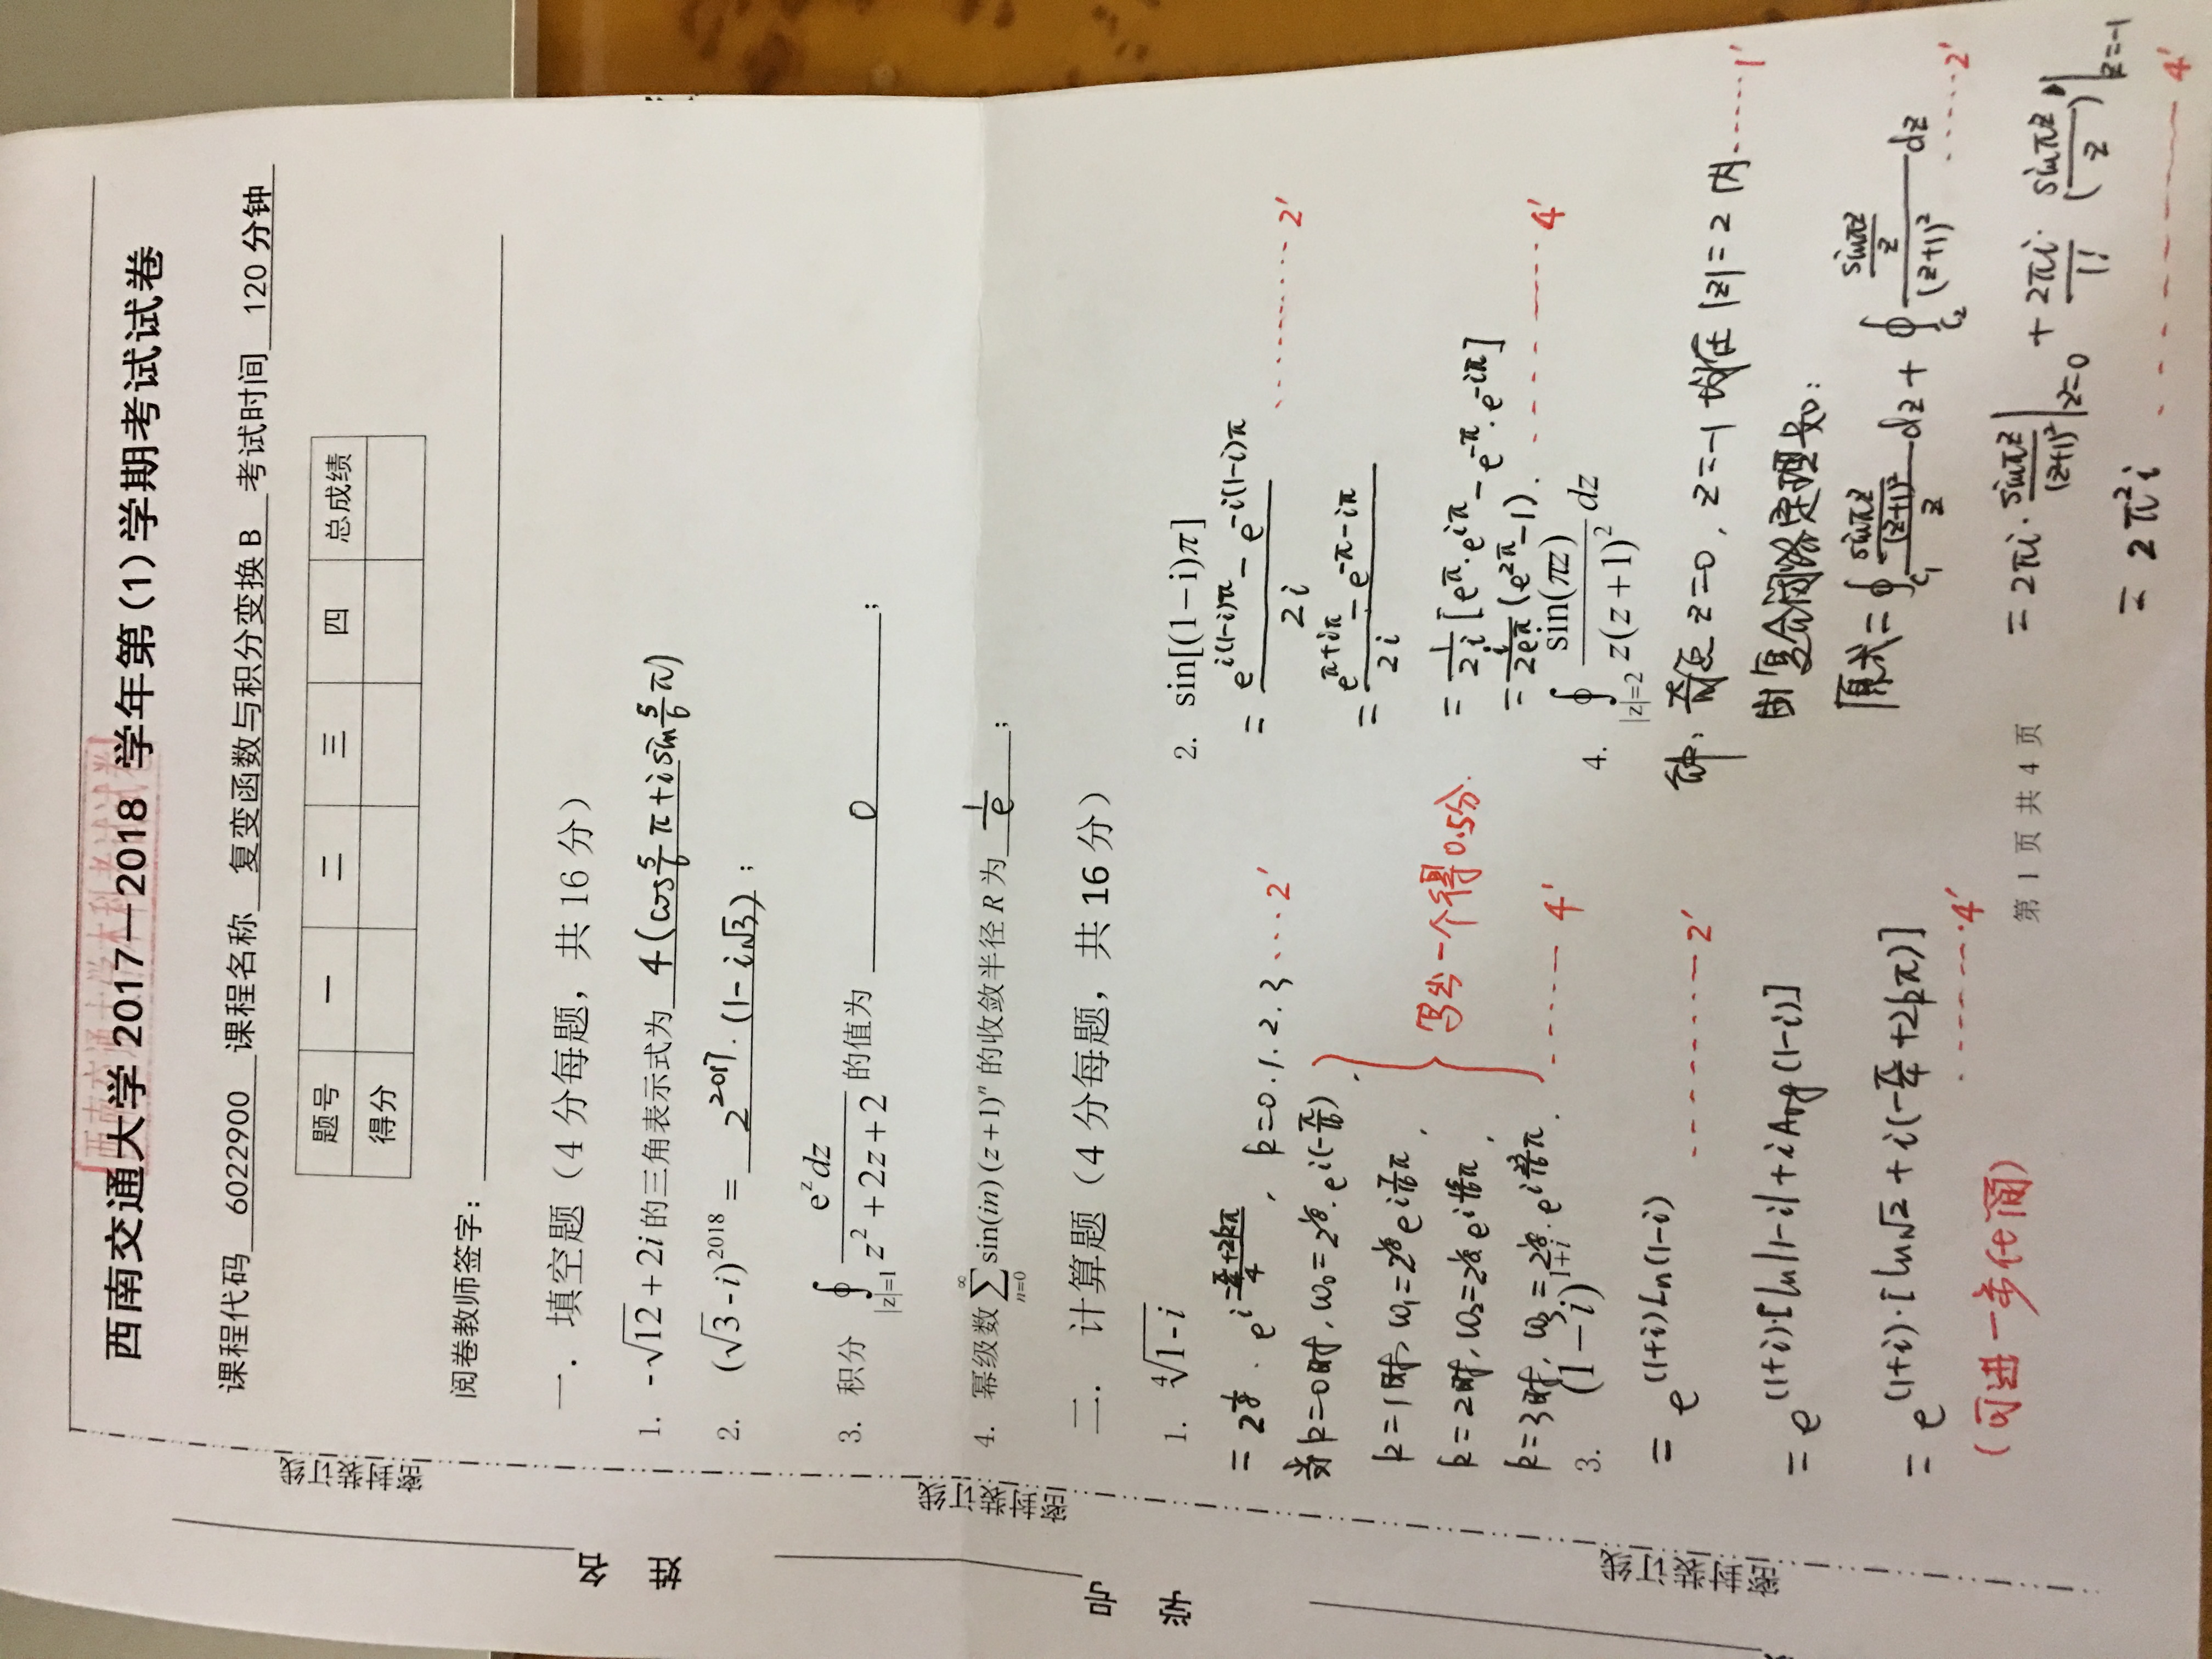 西南交通大学本科考试试卷
西南交通大学 2017—2018 学年第(1)学期考试试卷
课程代码 6022900 课程名称 复变函数与积分变换 B 考试时间 120 分钟
题号 一 二 三 四 总成绩
得分
阅卷教师签字:
姓 名
学 号
密封装订线
密封装订线
密封装订线
一. 填空题（4 分每题，共 16 分）
1. -√12 + 2i 的三角表示式为 4(cos 5/6 π + i sin 5/6 π)
2. (√3 - i)^2018 = 2^2017 · (1 - i√3) ;
3. 积分 ∮_{|z|=1} e^z dz / (z^2 + 2z + 2) 的值为 0 ;
4. 幂级数 ∑_{n=0}^{∞} sin(in) (z+1)^n 的收敛半径 R 为 1/e ;
二. 计算题（4 分每题，共 16 分）
1. ⁴√(1-i)
= 2^{1/8} · e^{i (-π/4+2kπ)/4}, k=0.1.2.3 ...2'
当k=0时, ω₀=2^{1/8}·e^{i(-π/16)},
k=1时, ω₁=2^{1/8} e^{i 7/16 π},
k=2时, ω₂=2^{1/8} e^{i 15/16 π},
k=3时, ω₃=2^{1/8}·e^{i 23/16 π}. ...... 4'
写出一个得0.5分.
2. sin[(1-i)π]
= (e^{i(1-i)π} - e^{-i(1-i)π}) / 2i ......... 2'
= (e^{π+iπ} - e^{-π-iπ}) / 2i
= 1/2i [e^π·e^{iπ} - e^{-π}·e^{-iπ}]
= i/(2e^π) (e^{2π}-1). ......... 4'
3. (1-i)^{1+i}
= e^{(1+i)Ln(1-i)} ......... 2'
= e^{(1+i)·[ln|1-i|+iArg(1-i)]}
= e^{(1+i)·[ln√2+i(-π/4+2kπ)]}
......... 4'
(可进一步化简)
4. ∮_{|z|=2} sin(πz) / (z(z+1)^2) dz
解: 奇点 z=0, z=-1 均在 |z|=2 内 ...... 1'
由复合闭路定理知:
原式 = ∮_{C₁} (sinπz/(z+1)^2)/z dz + ∮_{C₂} (sinπz/z)/(z+1)^2 dz ...... 2'
= 2πi · sinπz/(z+1)^2 |_{z=0} + 2πi/1! · (sinπz/z)' |_{z=-1}
= 2π²i ......... 4'
第 1 页 共 4 页